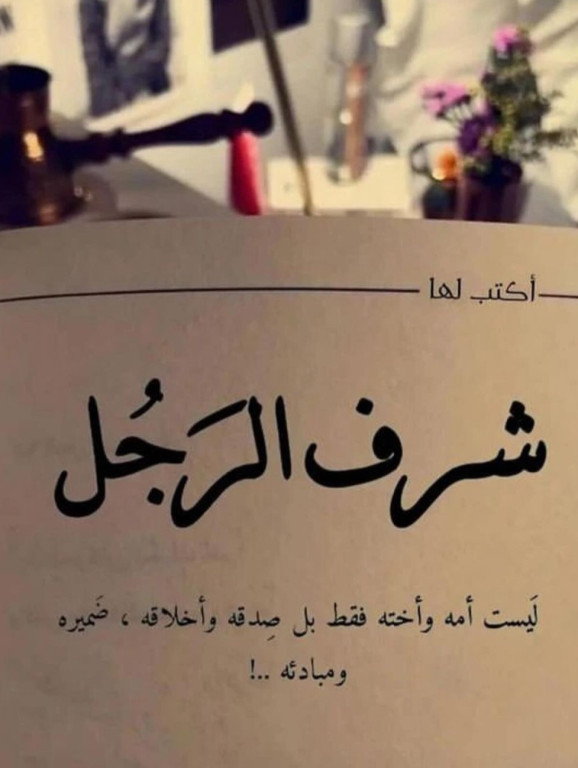 أكتب لها
شرف الرَجُل
لَيست أمه وأخته فقط بل صِدقه وأخلاقه ، ضَميره
ومبادئه ..!